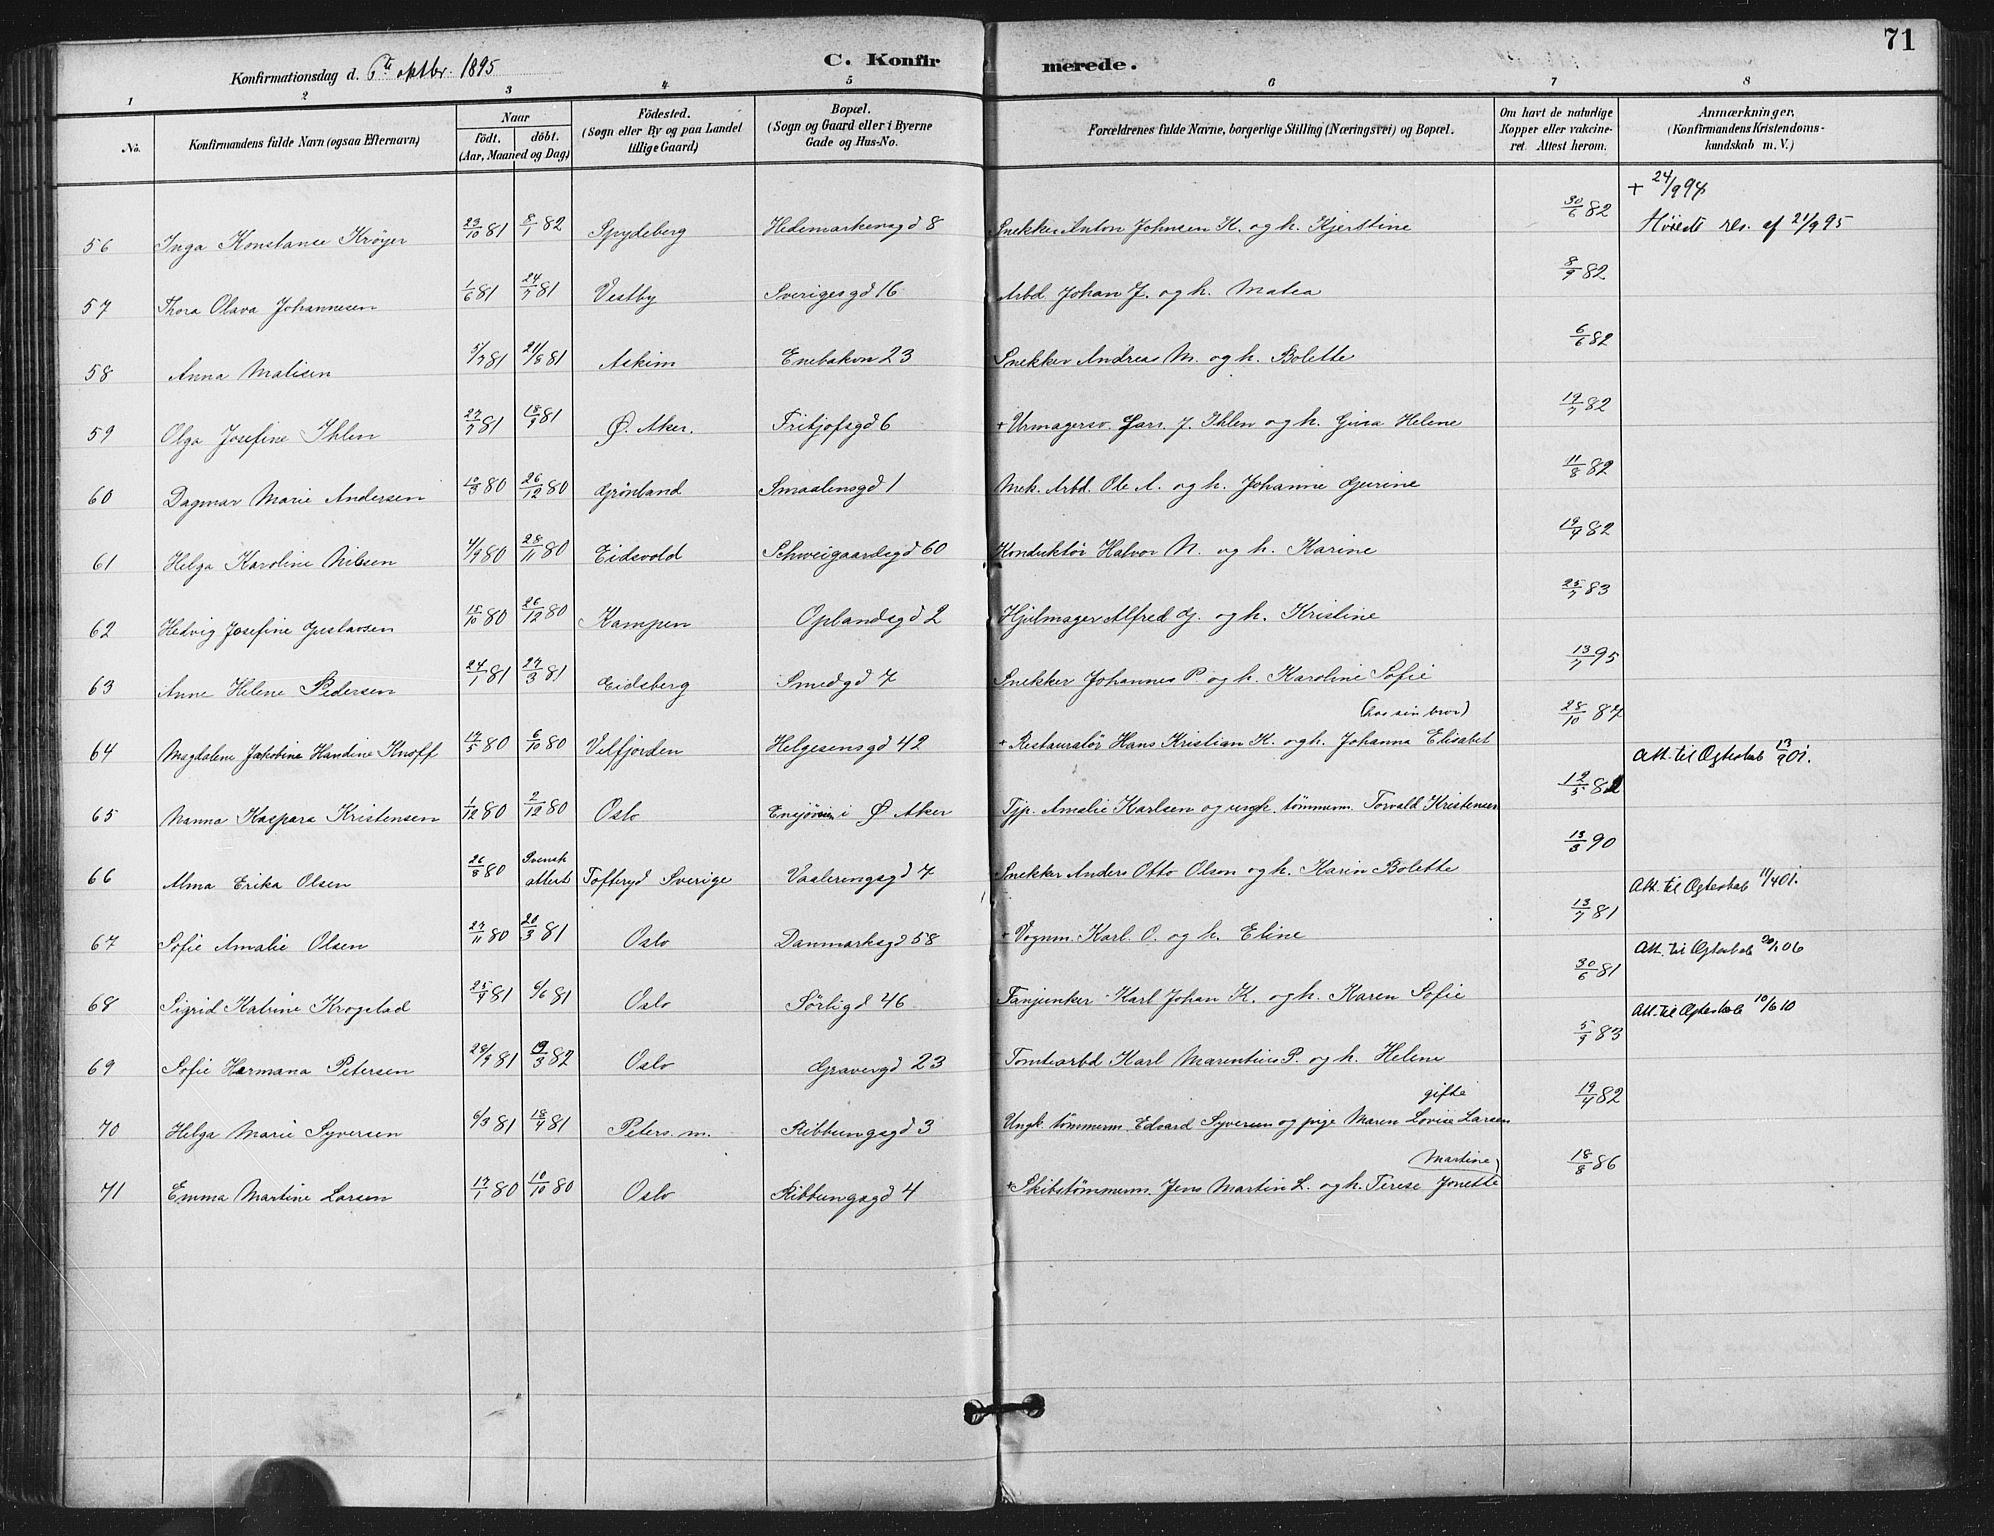 71
Konfirmationsdag d. 6te oktbr. 1895
C. Konfirmerede.
1 2 3 4 5 6 7 8
No. Konfirmandens fulde Navn (ogsaa Efternavn) Naar födt. döbt. (Aar, Maaned og Dag) Födested. (Sogn eller By og paa Landet tillige Gaard) Bopæl. (Sogn og Gaard eller i Byerne Gade og Hus-No. Forældrenes fulde Navne, borgerlige Stilling (Næringsvei) og Bopæl. Om havt de naturlige Kopper eller vakcineret. Attest herom. Anmærkninger. (Konfirmandens Kristendomskundskab m. V.)
56 Inga Konstance Krøyer 23/10 81 8/1 82 Spydeberg Hedemarkensgd 8 Snekker Anton Johnsen K. og h. Kjerstine 30/6 82 + 24/9 94 Høieste res. af 21/9 95
57 Thora Olava Johannesen 1/6 81 24/7 81 Vestby Sverigesgd 16 Arbd. Johan J. og h. Matea 8/9 82
58 Anna Matisen 5/7 81 21/8 81 Askim Enebakvn 23 Snekker Andreas M. og h. Bolette 6/6 82
59 Olga Josefine Ihlen 27/7 81 18/9 81 Ø. Aker. Fritjofsgd 6 + Urmagersv. Lars J. Ihlen og h. Gina Helene 19/7 82
60 Dagmar Marie Andersen 80 26/12 80 Grønland Smaalensgd 1 Mek. Arbd. Ole A. og h. Johanne Gurine 11/8 82
61 Helga Karoline Nilsen 4/9 80 28/11 80 Eidsvold Schweigaardsgd 60 Konduktør Halvor N. og h. Karine 19/4 82
62 Hedvig Josefine Gustavsen 15/10 80 26/12 80 Kampen Oplandsgd 2 Hjulmager Alfred G. og h. Kristine 25/7 83
63 Anne Helene Pedersen 24/1 81 27/3 81 Eidsberg Smedgd 7 Snekker Johannes P. og h. Karoline Sofie 13/7 95
64 Magdalene Jakobine Handine Knoff 17/5 80 6/10 80 Velfjorden Helgesensgd 42 + Restauratør Hans Kristian K. og h. Johanna Elisabet (hos sin bror) 28/10 87
65 Nanna Kaspara Kristensen 1/12 80 2/12 80 Oslo Ensjøvein i Ø Aker Tjp. Amalie Karlsen og ungk. tømmerm. Torvald Kristensen 12/5 82 Att. til Ægteskab 13/9 01.
66 Alma Erika Olsen 26/8 80 Svensk attest Tofteryd Sverige Vaalerengsgd 7 Snekker Anders Otto Olson og h. Karin Bolette 13/8 90
67 Sofie Amalie Olsen 27/11 80 20/3 81 Oslo Danmarksgd 58 + Vognm. Karl O. og h. Eline 13/7 81 Att. til Ægteskab 11/4 01.
68 Sigrid Katrine Krogstad 25/4 81 6/6 81 Oslo Sørligd 46 Fanjunker Karl Johan K. og h. Karen Sofie 30/6 81 Att. til Ægteskab 20/1 06
69 Sofie Hermana Petersen 28/9 81 19/3 82 Oslo Gravergd 23 Tomtearbd Karl Marentius P. og h. Helene 5/9 83 Att. til Ægteskab 10/6 10
70 Helga Marie Syversen 6/3 81 18/4 81 Peters m. Ribbungsgd 3 Ungk. tømmerm. Edvard Syversen og pige Maren Lovise Larsen gifte 19/4 82
71 Emma Martine Larsen 17/1 80 10/10 80 Oslo Ribbungsgd 4 + Skibstømmerm. Jens Martin L. og h. Terese Jonette Martine) 18/8 86